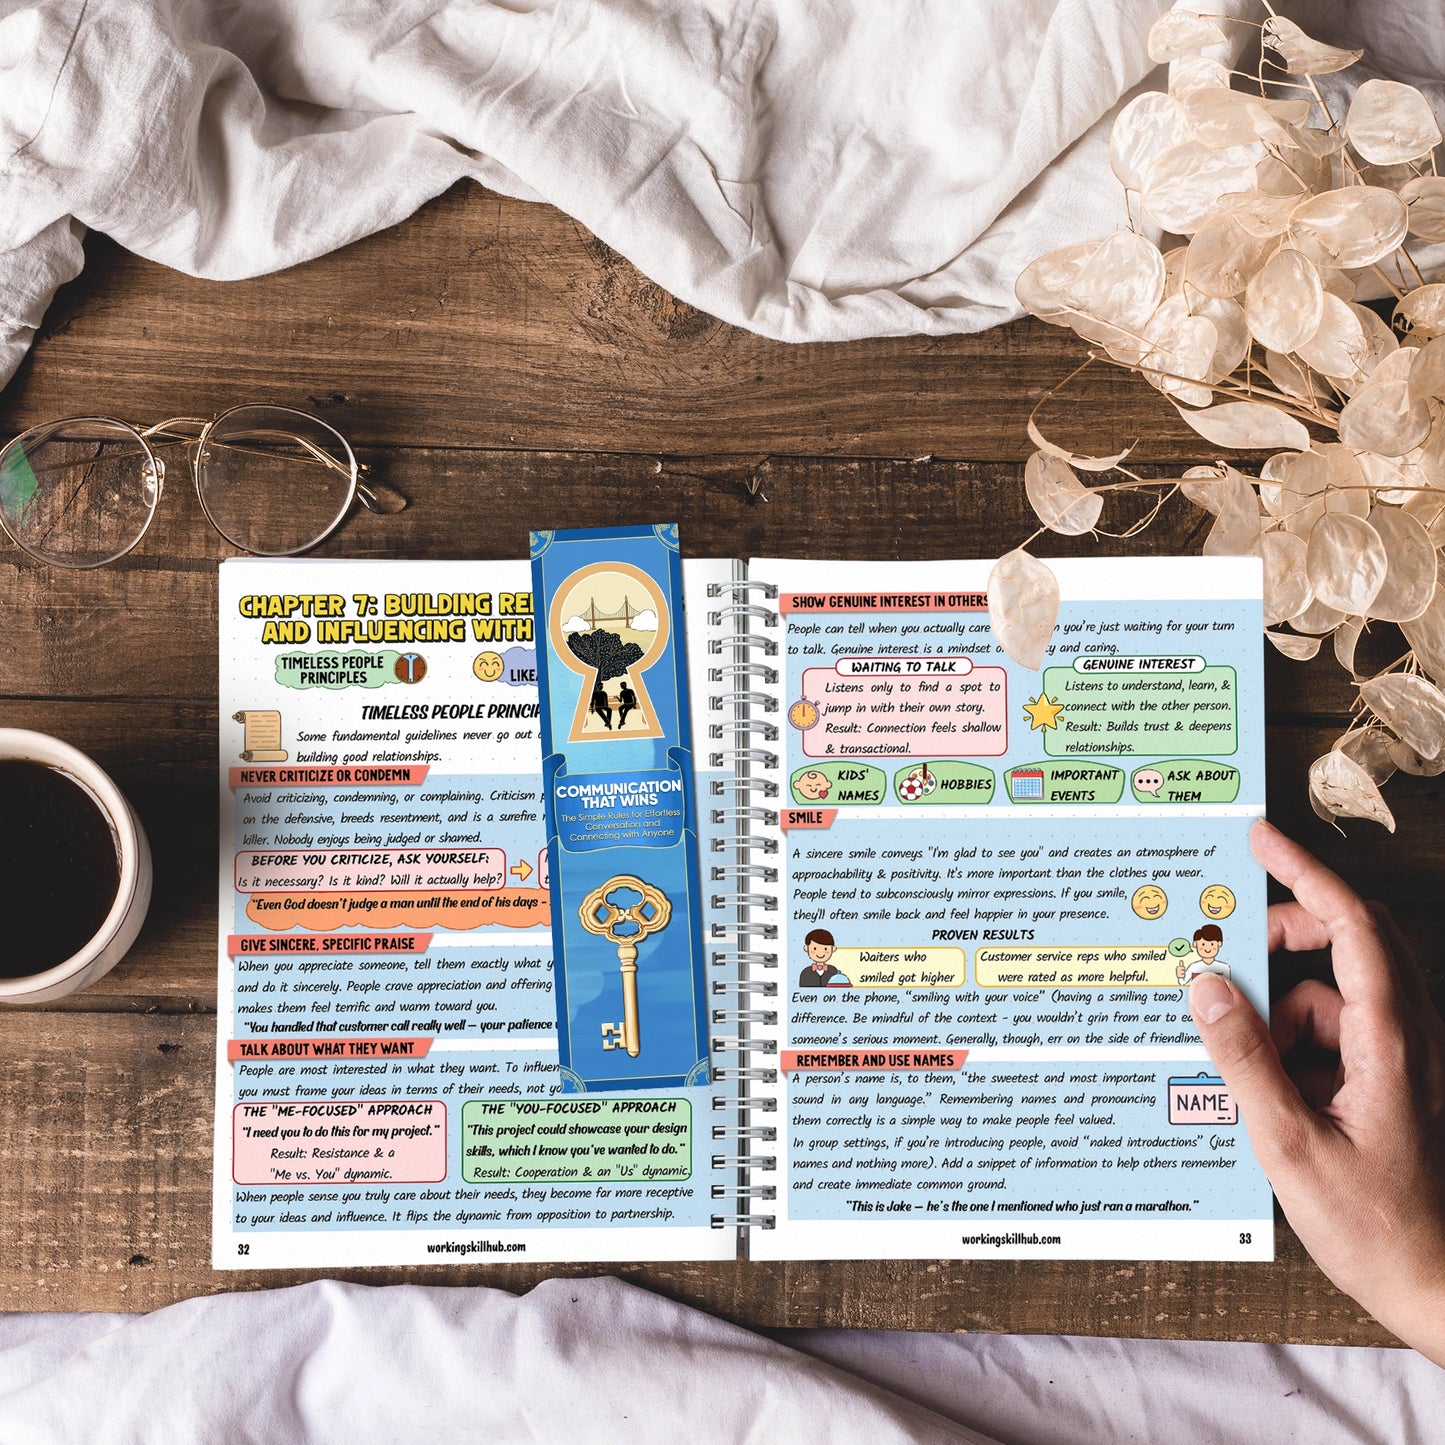 CHAPTER 7: BUILDING
AND INFLUENCING WITH
TIMELESS PEOPLE
PRINCIPLES
TIMELESS PEOPLE
Some fundamental guidelines never go out
building good relationships.
NEVER CRITICIZE OR CONDEMN
Avoid criticizing, condemning, or complaining. Criticism
on the defensive, breeds resentment, and is a surefire
killer. Nobody enjoys being judged or shamed.
BEFORE YOU CRITICIZE, ASK YOURSELF:
Is it necessary? Is it kind? Will it actually help?
"Even God doesn't judge a man until the end of his days -
GIVE SINCERE, SPECIFIC PRAISE
When you appreciate someone, tell them exactly what
and do it sincerely. People crave appreciation and offering
makes them feel terrific and warm toward you.
"You handled that customer call really well – your patience
TALK ABOUT WHAT THEY WANT
People are most interested in what they want. To
you must frame your ideas in terms of their needs, not
THE "ME-FOCUSED" APPROACH
"I need you to do this for my project."
Result: Resistance & a
"Me vs. You" dynamic.
THE "YOU-FOCUSED" APPROACH
"This project could showcase your design
skills, which I know you've wanted to do."
Result: Cooperation & an "Us" dynamic.
When people sense you truly care about their needs, they become far more receptive
to your ideas and influence. It flips the dynamic from opposition to partnership.
32
workingskillhub.com
COMMUNICATION
THAT WINS
The Simple Rules for Effortless
Conversation and
Connecting with Anyone
SHOW GENUINE INTEREST IN OTHERS
People can tell when you actually care you're just waiting for your turn
to talk. Genuine interest is a mindset and caring.
WAITING TO TALK
Listens only to find a spot to
jump in with their own story.
Result: Connection feels shallow
& transactional.
GENUINE INTEREST
Listens to understand, learn, &
connect with the other person.
Result: Builds trust & deepens
relationships.
KIDS'
NAMES
HOBBIES
IMPORTANT
EVENTS
ASK ABOUT
THEM
SMILE
A sincere smile conveys "I'm glad to see you" and creates an atmosphere of
approachability & positivity. It's more important than the clothes you wear.
People tend to subconsciously mirror expressions. If you smile,
they'll often smile back and feel happier in your presence.
PROVEN RESULTS
Waiters who
smiled got higher
Customer service reps who smiled
were rated as more helpful.
Even on the phone, "smiling with your voice" (having a smiling tone)
difference. Be mindful of the context - you wouldn't grin from ear to
someone's serious moment. Generally, though, err on the side of
REMEMBER AND USE NAMES
A person's name is, to them, "the sweetest and most important
sound in any language." Remembering names and pronouncing
them correctly is a simple way to make people feel valued.
NAME
In group settings, if you're introducing people, avoid "naked introductions" (just
names and nothing more). Add a snippet of information to help others remember
and create immediate common ground.
"This is Jake – he's the one I mentioned who just ran a marathon."
workingskillhub.com
33